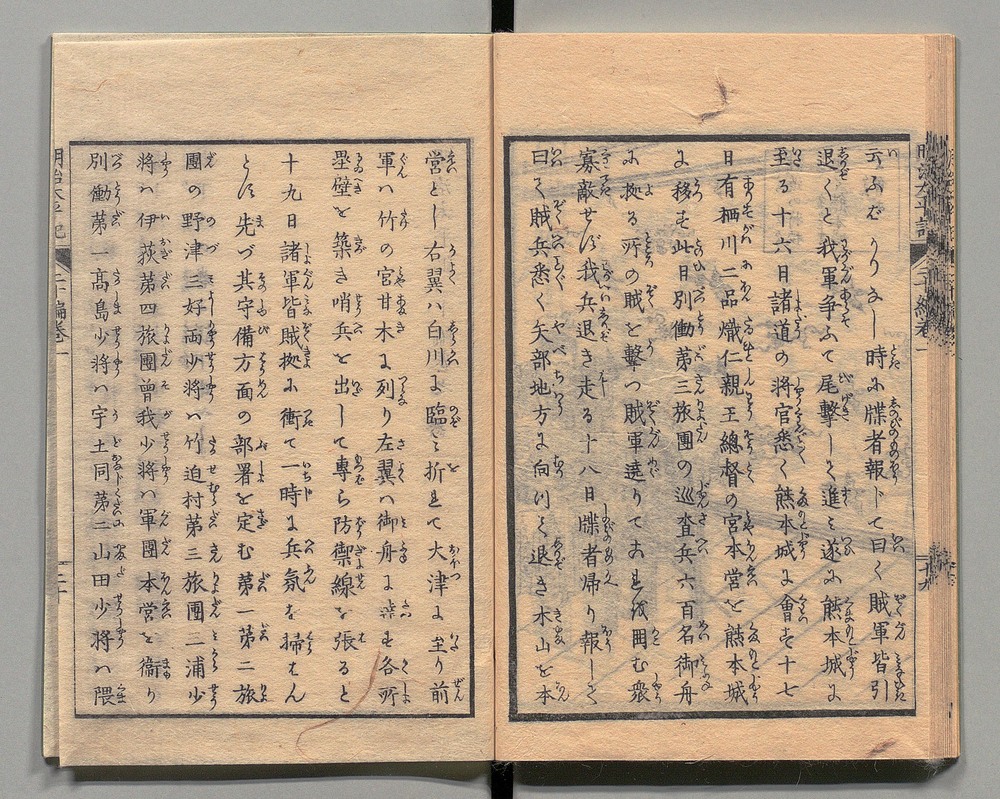 云ふばかりなし時に牒者報じて曰く賊軍皆引
退くと我軍争ふて尾撃しく進ミ遂に熊本城に
至る十六日諸道の将官悉く熊本城に會す十七
日有栖川二品熾仁親王總督の宮本営を熊本城
に移す此日別働第三旅團の巡査兵六百名御舟
に拠る所の賊を撃つ賊軍遶りてお越囲む衆
寡敵せず我兵退き走る十八日牒者帰り報じて
曰く賊兵悉く矢部地方に向ひて退き木山を本
明治太平記 二十編巻一
営とし右翼ハ白川に臨ミ折れて大津に至り前
軍ハ竹の宮甘木に列り左翼ハ御舟に す各所
塁壁を築き哨兵を出して専ら防禦線を張ると
十九日諸軍皆賊拠に衝て一時に兵氣を掃はん
とし先づ其守備方面の部署を定む第一第二旅
團の野津三好両少将ハ竹迫村第三旅團三浦少
将ハ伊荻第四旅團曾我少将ハ軍團本営を衞り
別働第一髙島少将ハ宇土同第二山田少将ハ隈
明治太平記 二十編巻一